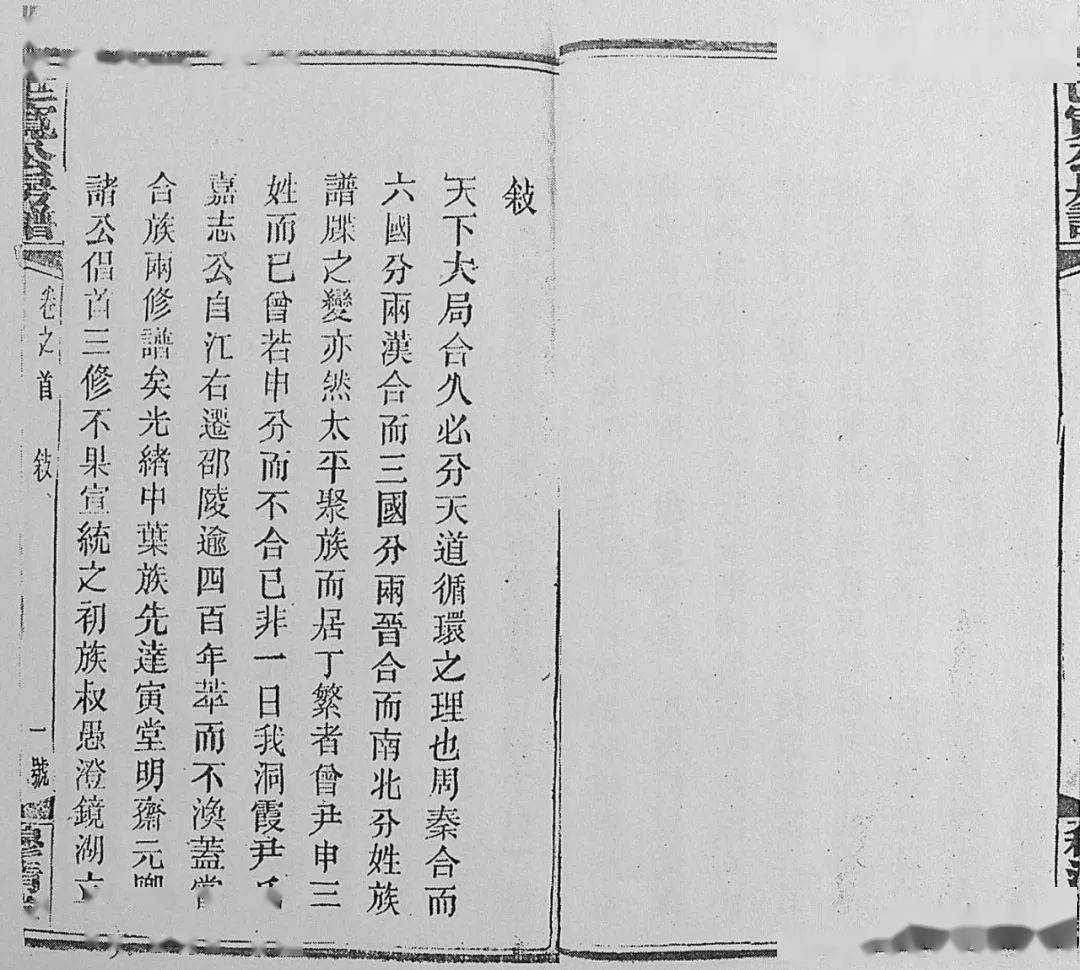 敍
天下大局合久必分天道循環之理也周秦合而
六國分兩漢合而三國分兩晉合而南北分姓族
譜牒之變亦然太平聚族而居丁繁者曾尹申三
姓而已曾若申分而不合已非一日我洞霞尹氏
嘉志公自江右遷邵陵逾四百年萃而不渙蓋嘗
合族兩修譜矣光緒中葉族先達寅堂明齋元卿
諸公倡首三修不果宣統之初族叔愚澄鏡湖立
公房譜
卷之首 敍 一號